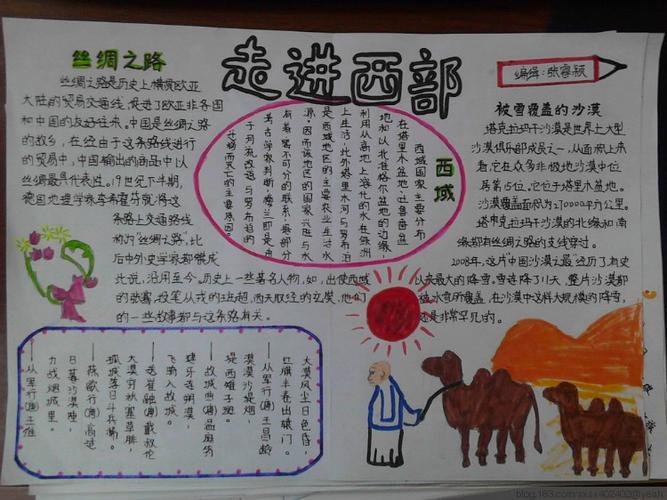 走进西部
编辑:张睿颖
丝绸之路
丝绸之路是历史上横贯欧亚
大陆的贸易交通线,促进了欧亚非各国
和中国的友好往来。中国是丝绸之路
的故乡,在经由于这条路线进行
的贸易中,中国输出的商品中以
丝绸最具代表性。19世纪下半期,
德国地理学家李希霍芬就将这
条路上交通路线
称为“丝绸之路”,此
后中外史学家都赞成
此说,沿用至今。历史上一些著名人物,如,出使西域
的张骞,投笔从戎的班超,西天取经的玄奘,他们
的一些故事都与这条路有关。
西域
西域国家主要分布
在塔里木盆地、吐鲁番盆
地和以北准格尔盆地的边缘,
利用从高地上溶化的水在绿洲
上生活,此外塔里木河与罗布泊
是西域地区的主要农业生活水
源,因而该地区的国家兴旺与水
有着密不可分的联系,据部分
考古学家判断,楼兰即是由
于河流改道与罗布泊的
干涸而灭亡的主要原因。
被雪覆盖的沙漠
塔克拉玛干沙漠是世界上大型
沙漠俱乐部成员之一,从面积上来
看,它在众多非极地沙漠中位
居第15位,它位于塔里木盆地。
沙漠覆盖面积为270000平方公里。
塔克拉玛干沙漠的北缘和南
缘都有丝绸之路的支线穿过。
2008年,这片中国沙漠最经历了有史
以来最大的降雪,雪连降了11天,整片沙漠都
被冰雪所覆盖,在沙漠中这样大规模的降雪,
还是非常罕见的。
大漠风尘日色昏,
红旗半卷出辕门。
——从军行(唐)王昌龄
漠漠沙堤烟,
堤西雉子斑。
——故城曲(唐)温庭筠
建牙连朔漠,
飞骑入故城。
——送崔融(唐)戴叔伦
大漠穷秋塞草腓,
孤城落日斗兵稀。
——燕歌行(唐)高适
日暮沙漠陲,
力战烟城里。
——从军行(唐)王维